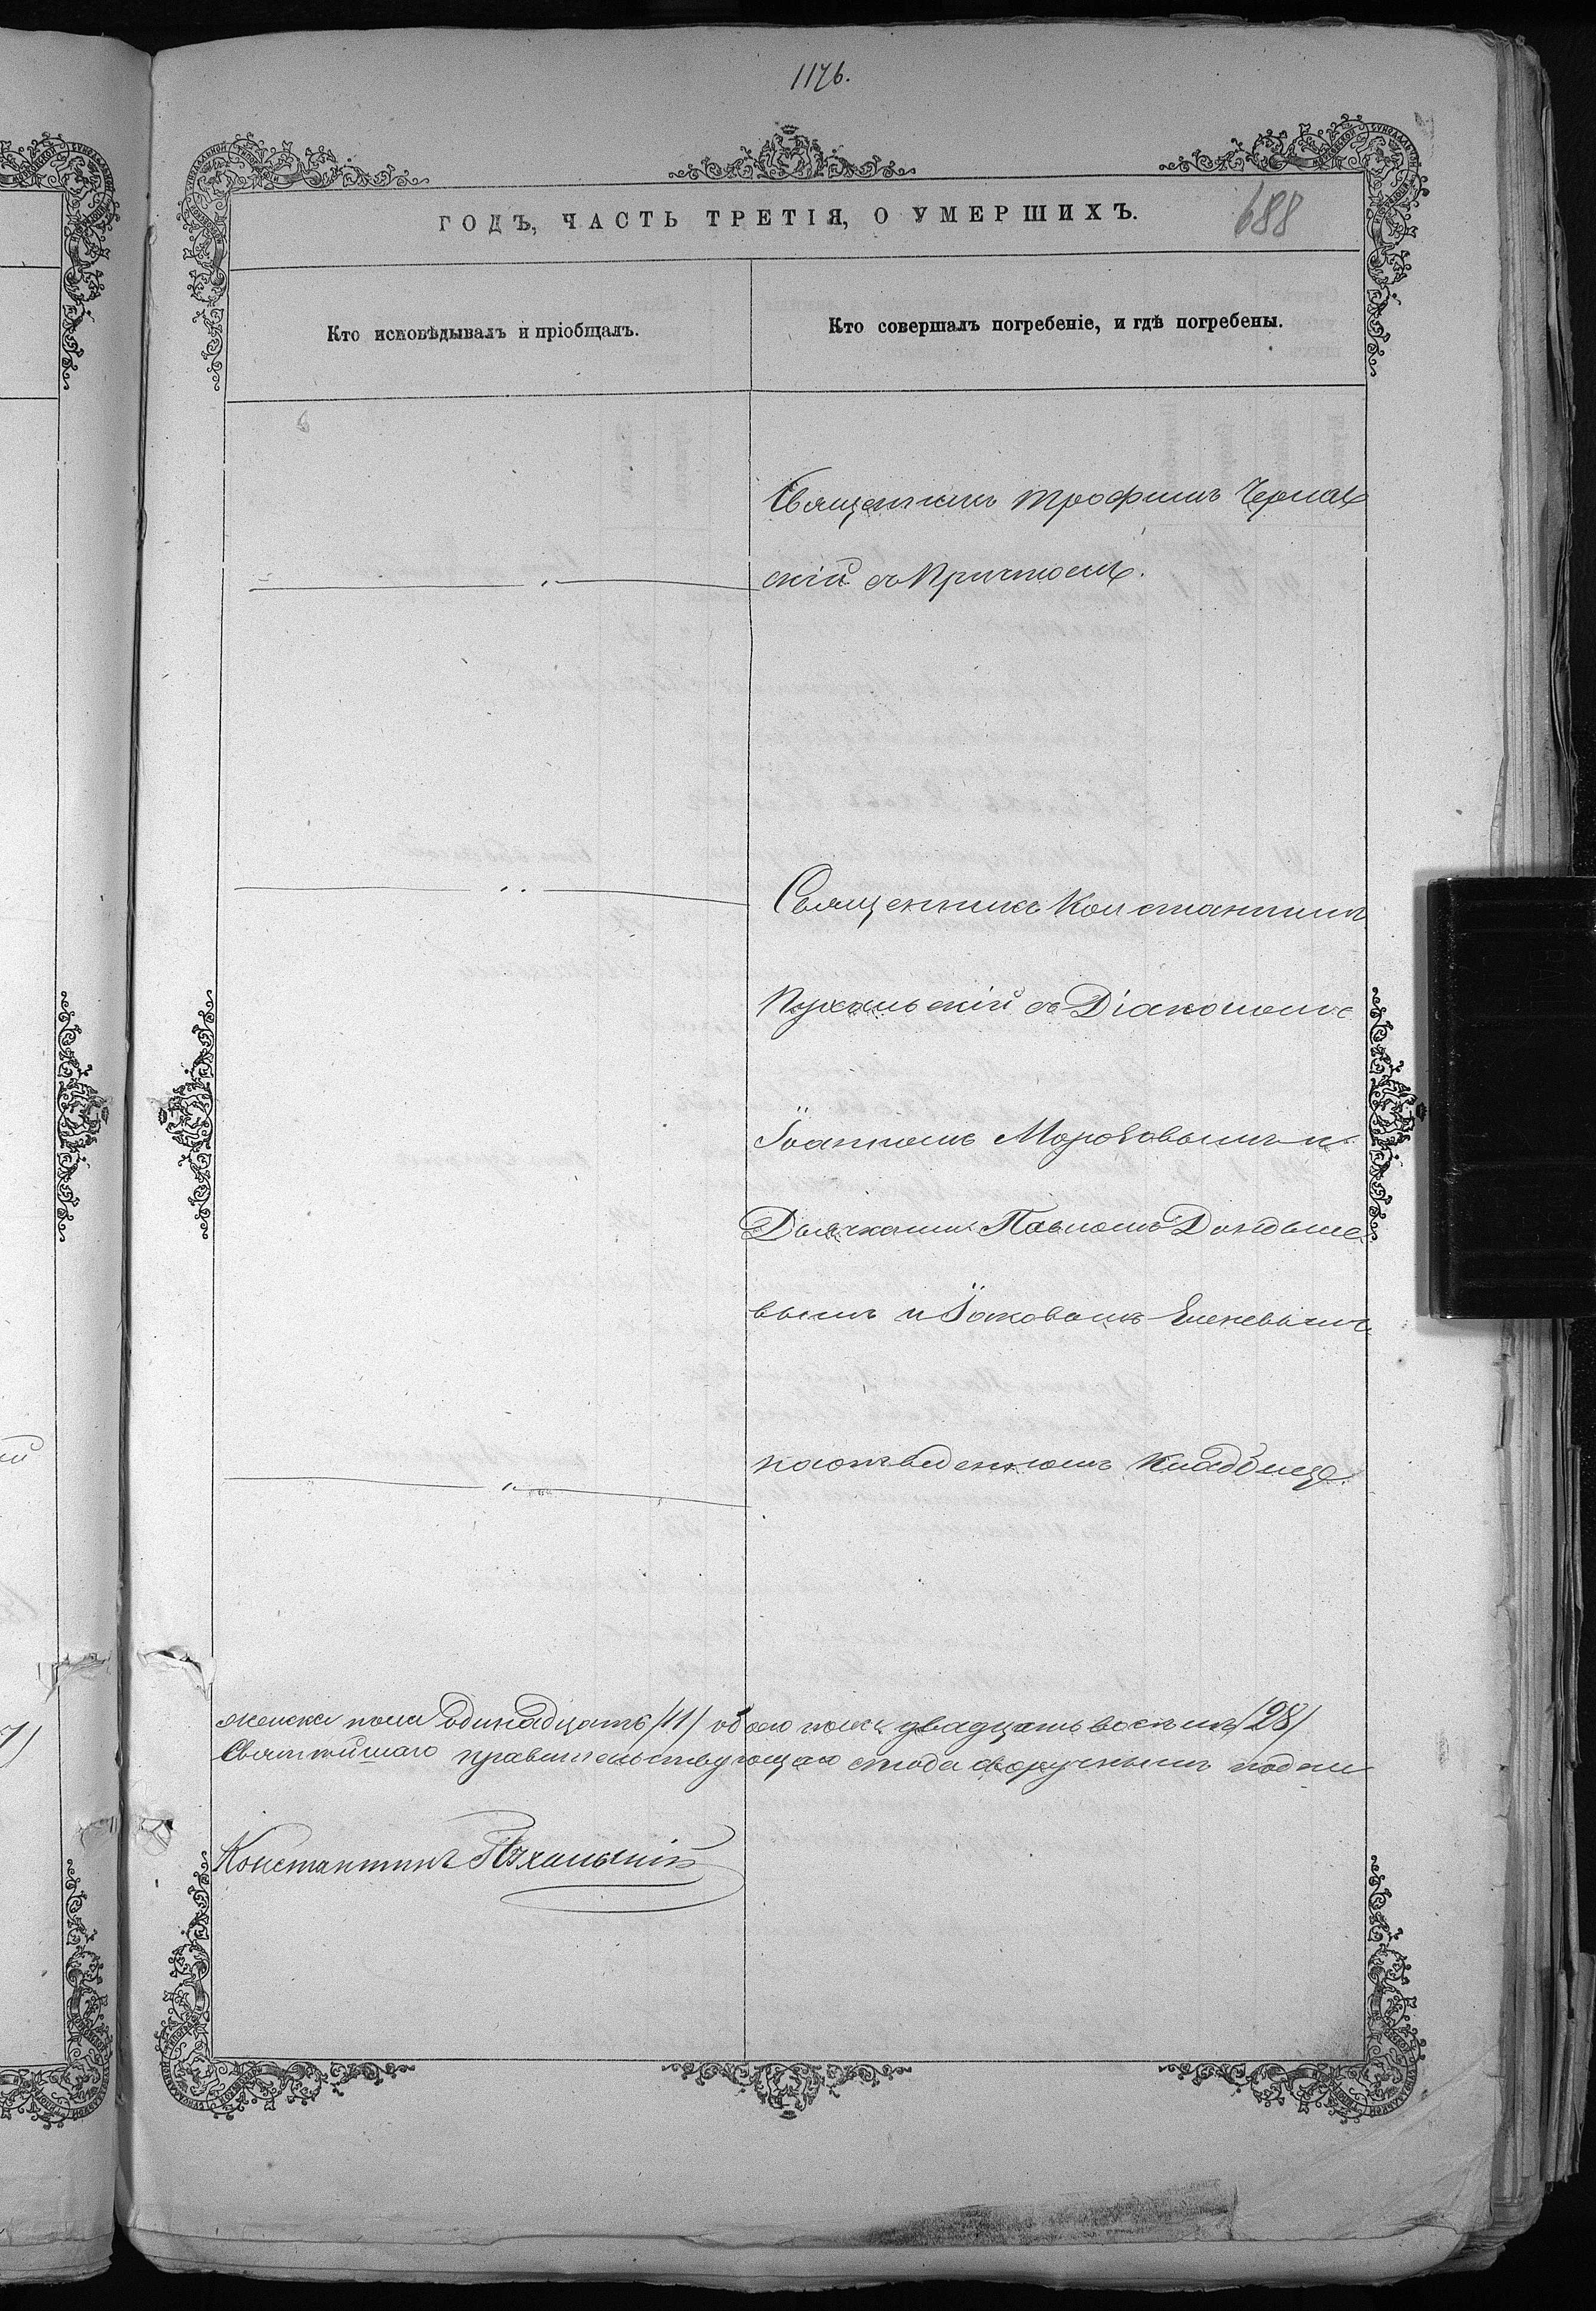 1176.
ГОДЪ, ЧАСТЬ ТРЕТІЯ, О УМЕРШИХЪ.
688
Кто исповѣдывалъ и пріобщалъ.
Кто совершалъ погребеніе, и гдѣ погребены.
Священникъ Трофимъ Чернав
скій съ Причтомъ.
Священникъ Константинъ
Пухальскій съ Діакономъ
Іоанномъ Морозовымъ и
Дьячками Павломъ
вымъ и Іаковомъ
наотведенномъ Кладбище.
женска пола одинадцать /11/ обоего пола двадцать восемь /28/
Святѣйшаго правительствующаго синода своручнымъ подпи
Константинъ Пухальскій